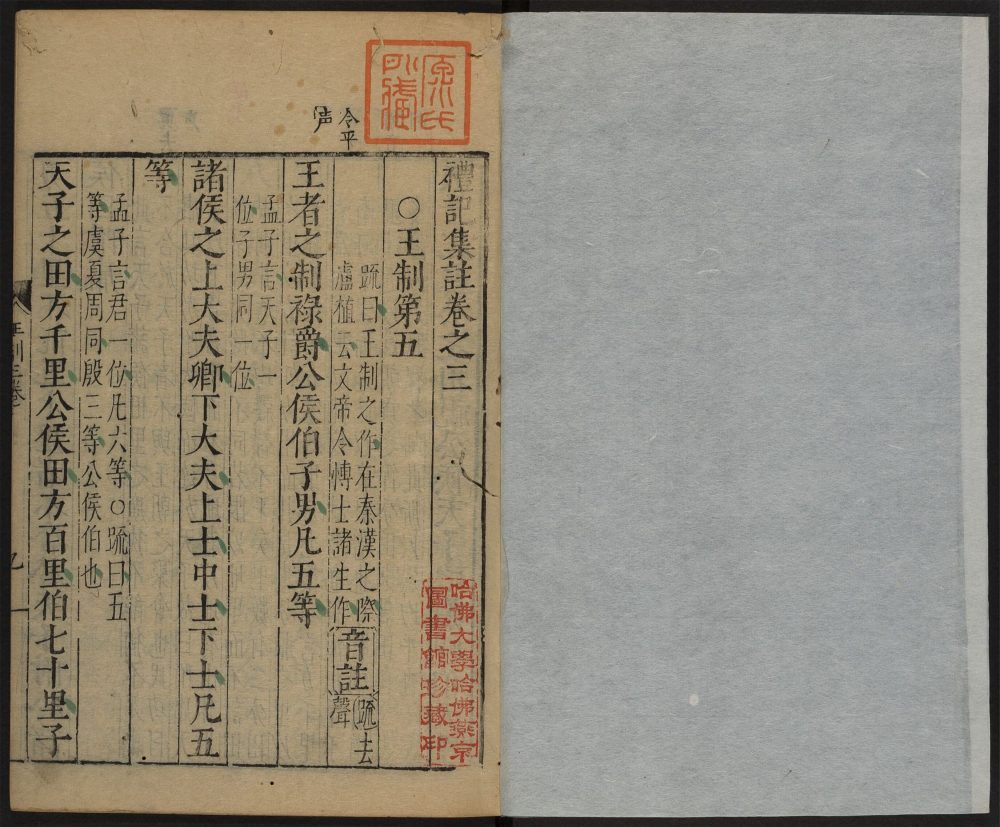 禮記集註卷之三
○王制第五
疏曰王制之作在秦漢之際
盧植云文帝令愽士諸生作
音註
疏去
聲
令平
声
王者之制祿爵公侯伯子男凡五等
孟子言天子一
位子男同一位
諸侯之上大夫卿下大夫上士中士下士凡五
等
孟子言君一位凡六等○疏曰五
等虞夏周同殷三等公侯伯也
天子之田方千里公侯田方百里伯七十里子
王制三卷
哈佛大學哈佛燕京
圖書館珍藏印